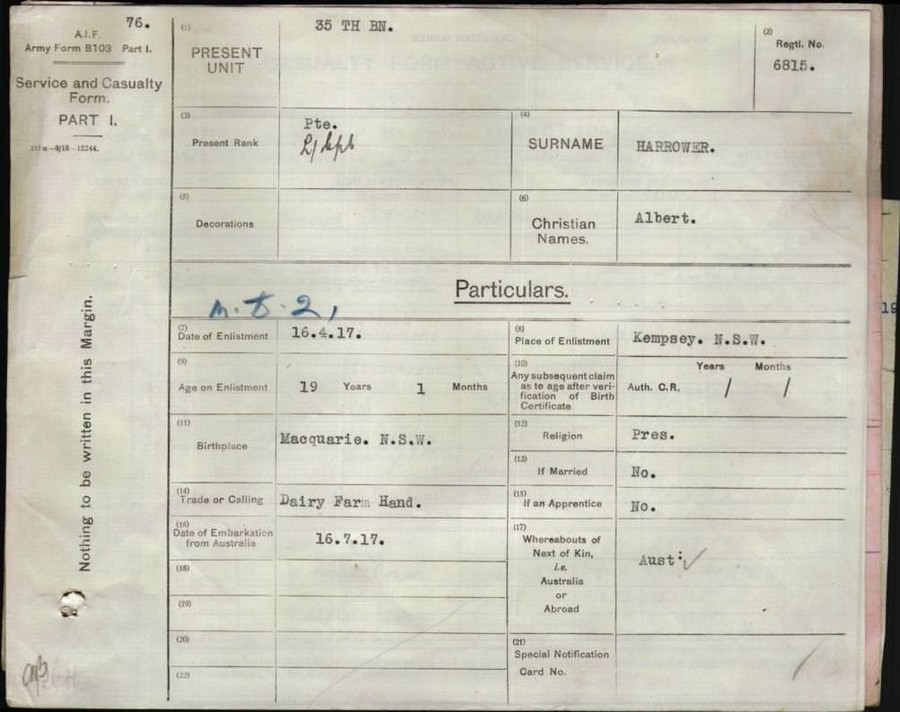 76.
A.I.F.
Army Form B103 Part I.
Service and Casualty
Form.
PART I.
Nothing to be written in this Margin.
(1)
PRESENT
UNIT
35 TH BN.
(2)
Regtl. No.
6815.
(3)
Present Rank
Pte.
(4)
SURNAME
HARROWER.
(5)
Decorations
(6)
Christian
Names.
Albert.
Particulars.
(7)
Date of Enlistment
16.4.17.
(8)
Place of Enlistment
Kempsey. N.S.W.
(9)
Age on Enlistment
19 Years 1 Months
(10)
Any subsequent claim
as to age after veri-
fication of Birth
Certificate
Years Months
Auth. C.R. / /
(11)
Birthplace
Macquarie. N.S.W.
(12)
Religion
Pres.
(13)
If Married
No.
(14)
Trade or Calling
Dairy Farm Hand.
(15)
If an Apprentice
No.
(16)
Date of Embarkation
from Australia
16.7.17.
(17)
Whereabouts of
Next of Kin,
i.e.
Australia
or
Abroad
Aust:
(18)
(19)
(20)
(21)
Special Notification
Card No.
(22)
19